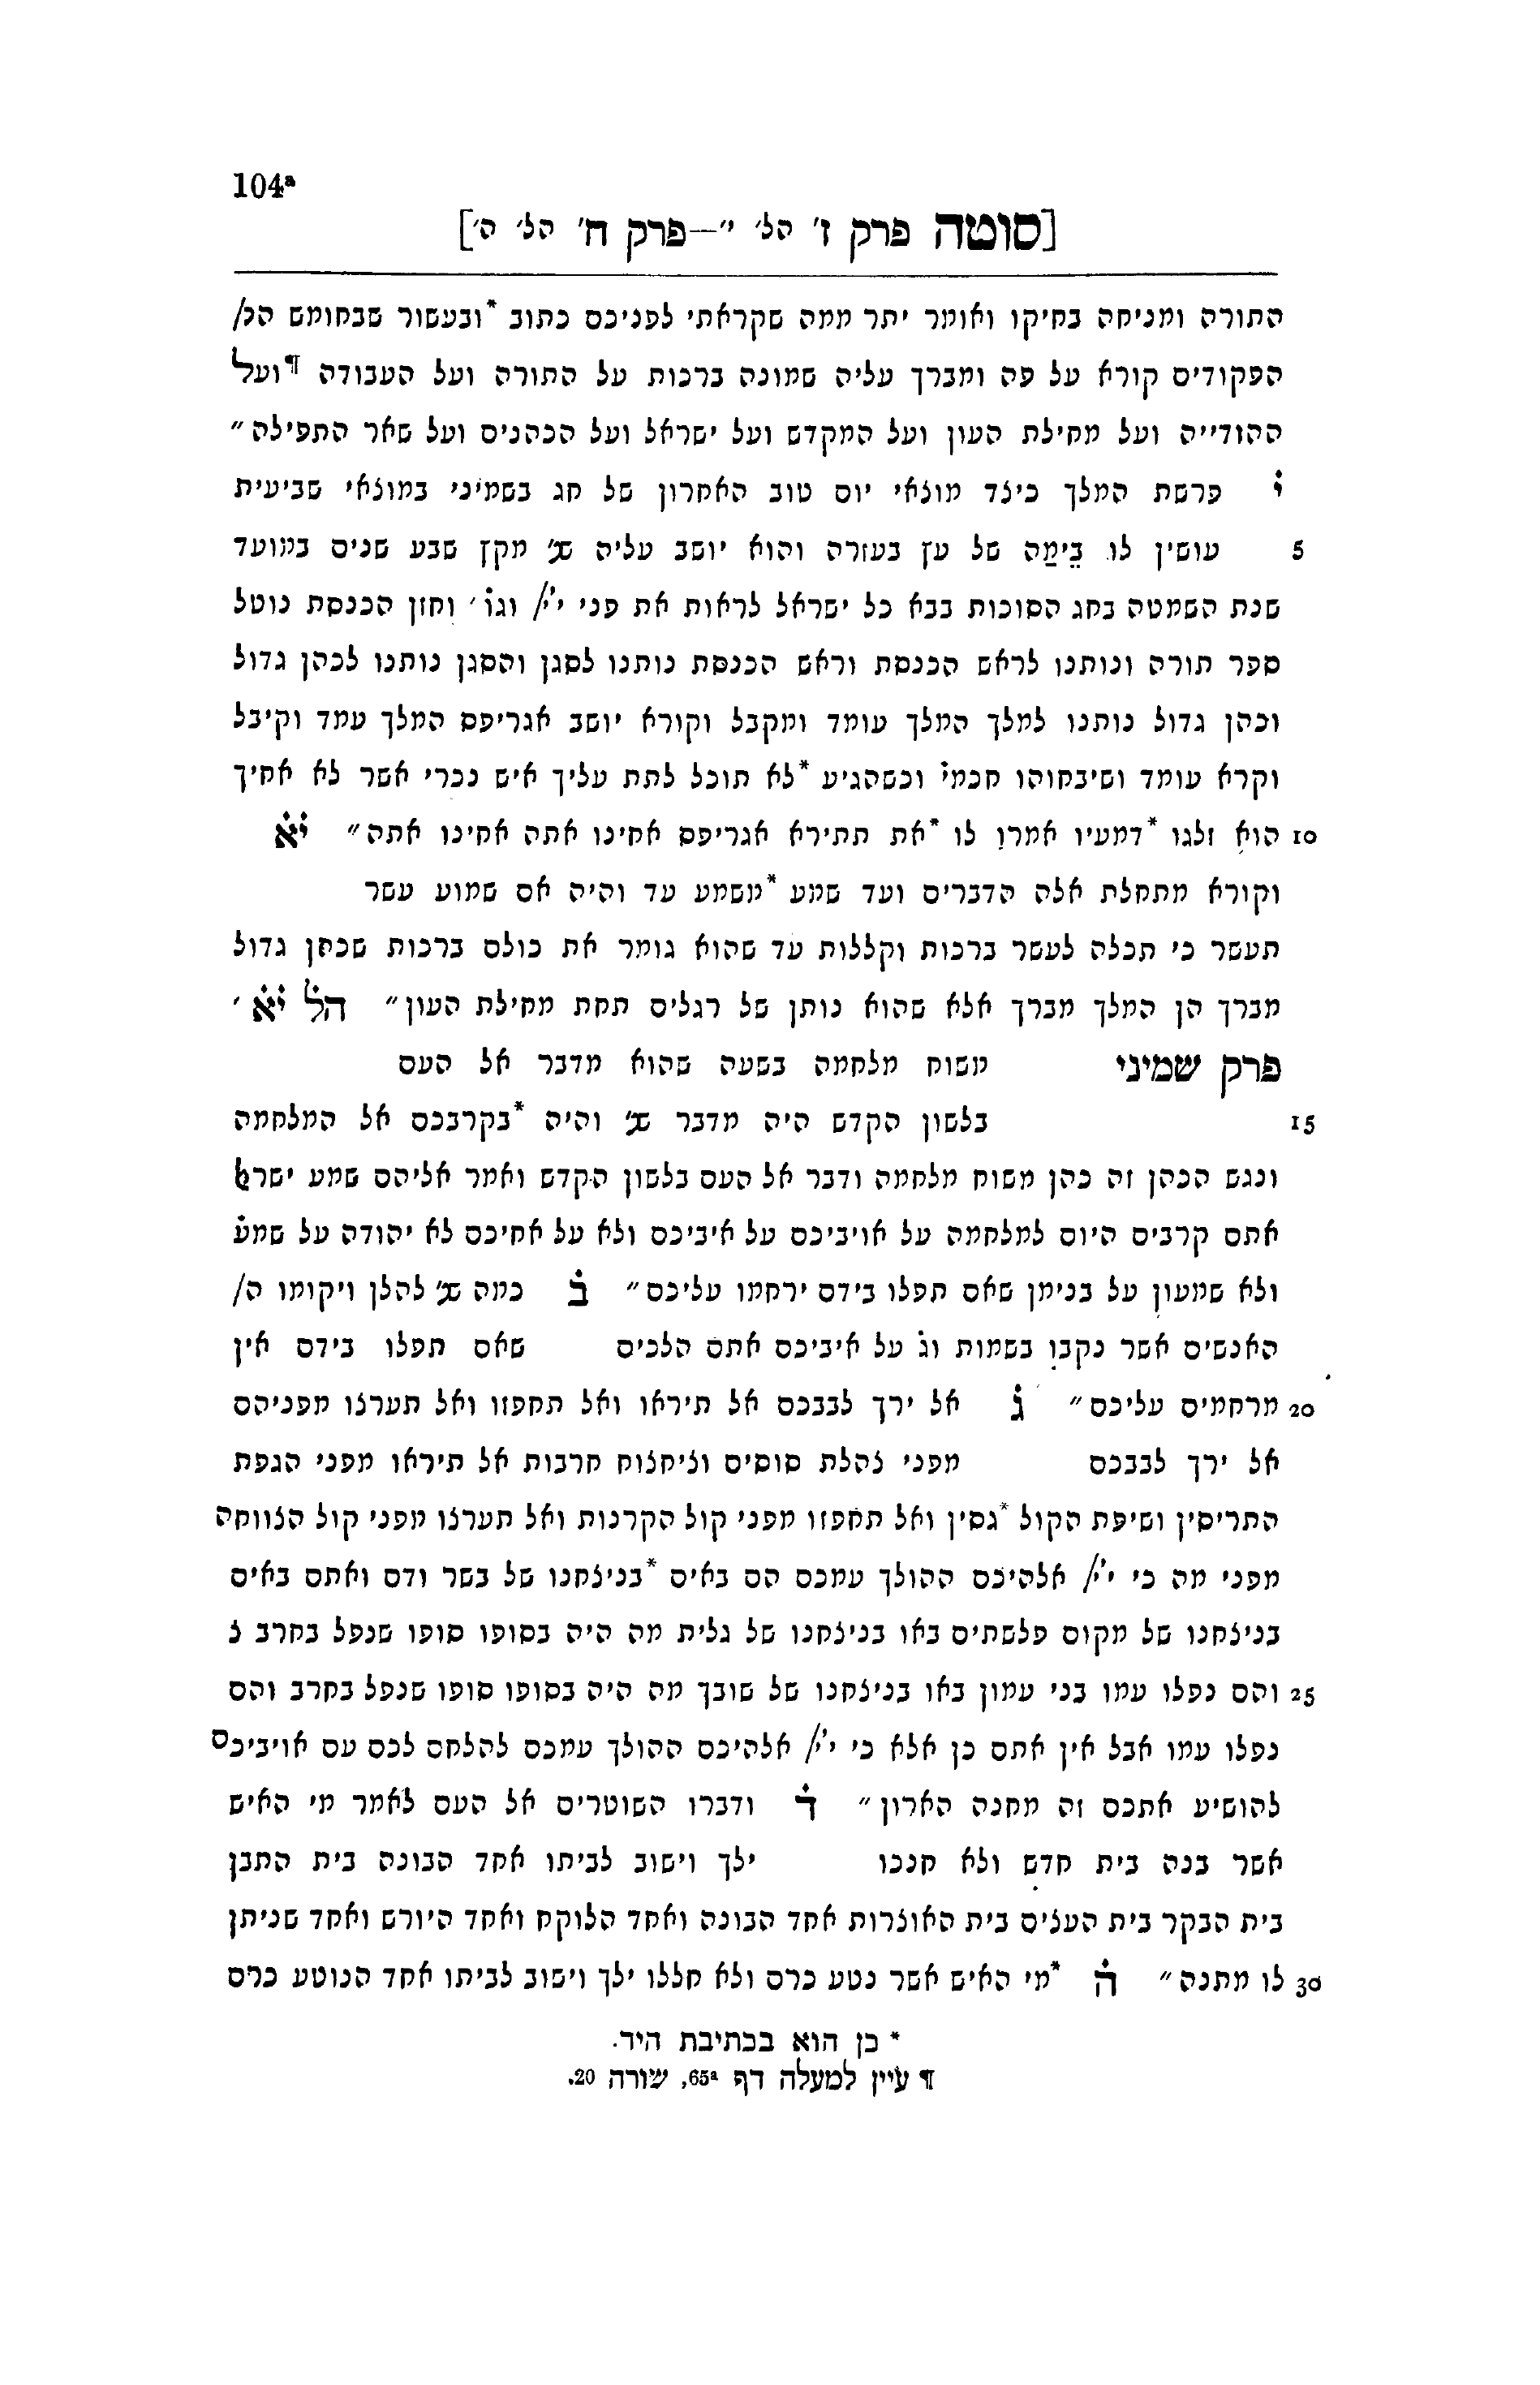 104ᵃ
[סוטה פרק ז' הל' י'—פרק ח' הל' ה']
התורה ומניחה בחיקו ואומר יתר ממה שקראתי לפניכם כתוב *ובעשור שבחומש הפ/
הפקודים קורא על פה ומברך עליה שמונה ברכות על התורה ועל העבודה ¶ועל
ההודייה ועל מחילת העון ועל המקדש ועל ישראל ועל הכהנים ועל שאר התפילה״
י פרשת המלך כיצד מוצאי יום טוב האחרון של חג בשמיני במוצאי שביעית
5 עושין לו בֵימַה של עץ בעזרה והוא יושב עליה שנ' מקץ שבע שנים במועד
שנת השמטה בחג הסוכות בבא כל ישראל לראות את פני י'י/ וגו' וחזן הכנסת נוטל
ספר תורה ונותנו לראש הכנסת וראש הכנסת נותנו לסגן והסגן נותנו לכהן גדול
וכהן גדול נותנו למלך המלך עומד ומקבל וקורא יושב אגריפס המלך עמד וקיבל
וקרא עומד ושיבחוהו חכמי' וכשהגיע *לא תוכל לתת עליך איש נכרי אשר לא אחיך
10 הוא זלגו *דמעיו אמרו לו *את תתירא אגריפס אחינו אתה אחינו אתה״ יא
וקורא מתחלת אלה הדברים ועד שמע *משמע עד והיה אם שמוע עשר
תעשר כי תכלה לעשר ברכות וקללות עד שהוא גומר את כולם ברכות שכהן גדול
מברך הן המלך מברך אלא שהוא נותן של רגלים תחת מחילת העון״ הל יא '
פרק שמיני משוח מלחמה בשעה שהוא מדבר אל העם
15 בלשון הקדש היה מדבר שנ' והיה *בקרבכם אל המלחמה
ונגש הכהן זה כהן משוח מלחמה ודבר אל העם בלשון הקדש ואמר אליהם שמע ישראל
אתם קרבים היום למלחמה על אויביכם על איביכם ולא על אחיכם לא יהודה על שמע'
ולא שמעון על בנימן שאם תפלו בידם ירחמו עליכם״ ב כמה שנ' להלן ויקומו ה/
האנשים אשר נקבו בשמות וג' על איביכם אתם הלכים שאם תפלו בידם אין
20 מרחמים עליכם״ ג אל ירך לבבכם אל תיראו ואל תחפזו ואל תערצו מפניהם
אל ירך לבבכם מפני צהלת סוסים וציחצוח חרבות אל תיראו מפני הגפת
התריסין ושיפת הקול *גסין ואל תחפזו מפני קול הקרנות ואל תערצו מפני קול הצווחה
מפני מה כי י'י/ אלהיכם ההולך עמכם הם באים *בניצחנו של בשר ודם ואתם באים
בניצחנו של מקום פלשתים באו בניצחנו של גלית מה היה בסופו סופו שנפל בחרב צ
25 והם נפלו עמו בני עמון באו בניצחנו של שובך מה היה בסופו סופו שנפל בחרב והם
נפלו עמו אבל אין אתם כן אלא כי י'י/ אלהיכם ההולך עמכם להלחם לכם עם אויביכם
להושיע אתכם זה מחנה הארון״ ד ודברו השוטרים אל העם לאמר מי האיש
אשר בנה בית חדש ולא חנכו ילך וישוב לביתו אחד הבונה בית התבן
בית הבקר בית העצים בית האוצרות אחד הבונה ואחד הלוקח ואחד היורש ואחד שניתן
30 לו מתנה״ ה *מי האיש אשר נטע כרם ולא חללו ילך וישוב לביתו אחד הנוטע כרם
* כן הוא בכתיבת היד.
¶ עיין למעלה דף 65ᵃ, שורה 20.